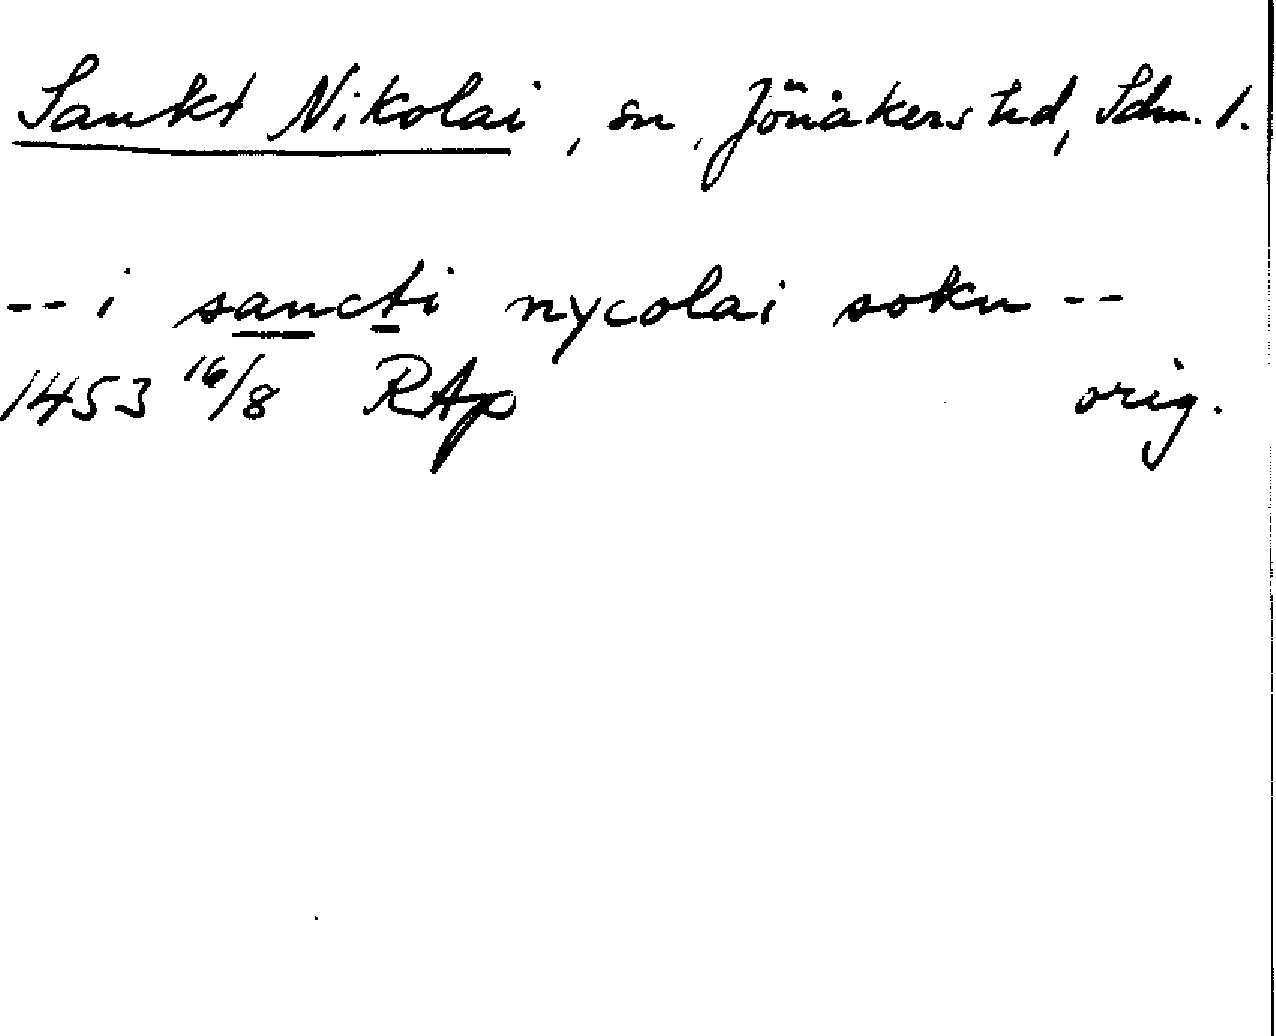 Sankt Nikolai, sn, Jönåkers hd, Sdm. l.
-- i sancti nycolai sokn --
1453 16/8 RAp orig.